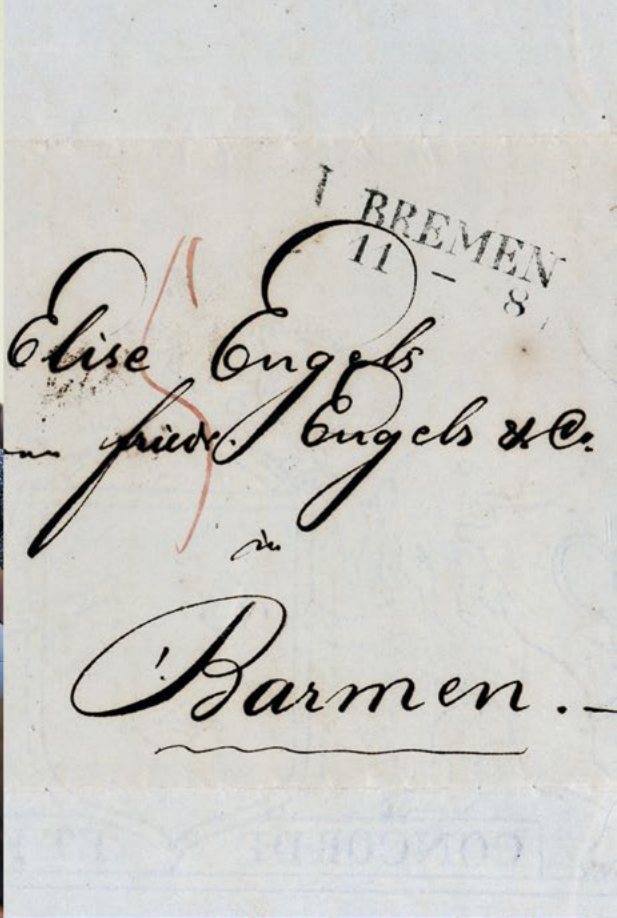 BREMEN
11 - 8
Elise Engels
friedr. Engels & Co.
in
Barmen. -
CONCORDE